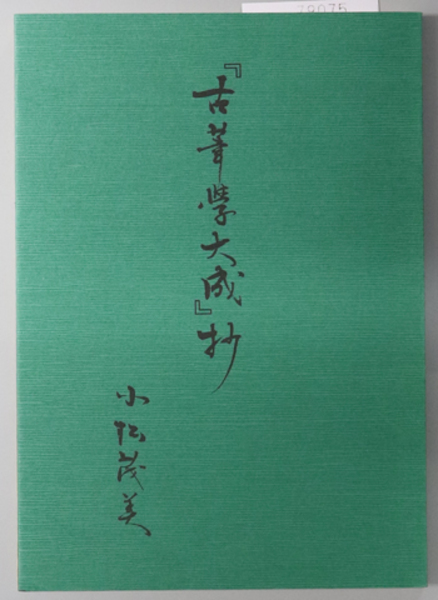 78075
『古筆学大成』抄
小松茂美